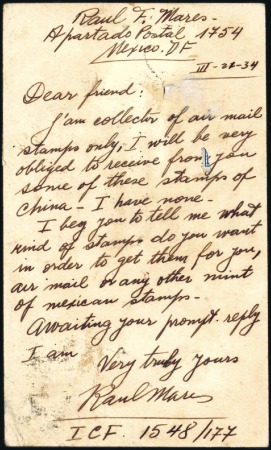 Raul F. Mares-
Apartado Postal 1754
Mexico. DF
III-22-34
Dear friend:
I'am collector of air mail
stamps only, I will be very
obliged to receive from you
some of these stamps of
China - I have none-
I beg you to tell me what
kind of stamps do you want
in order to get them for you,
air mail or any other mint
of mexican stamps-
Awaiting your prompt. reply
I am
Very truly yours
Raul Mares
ICF. 1548/177